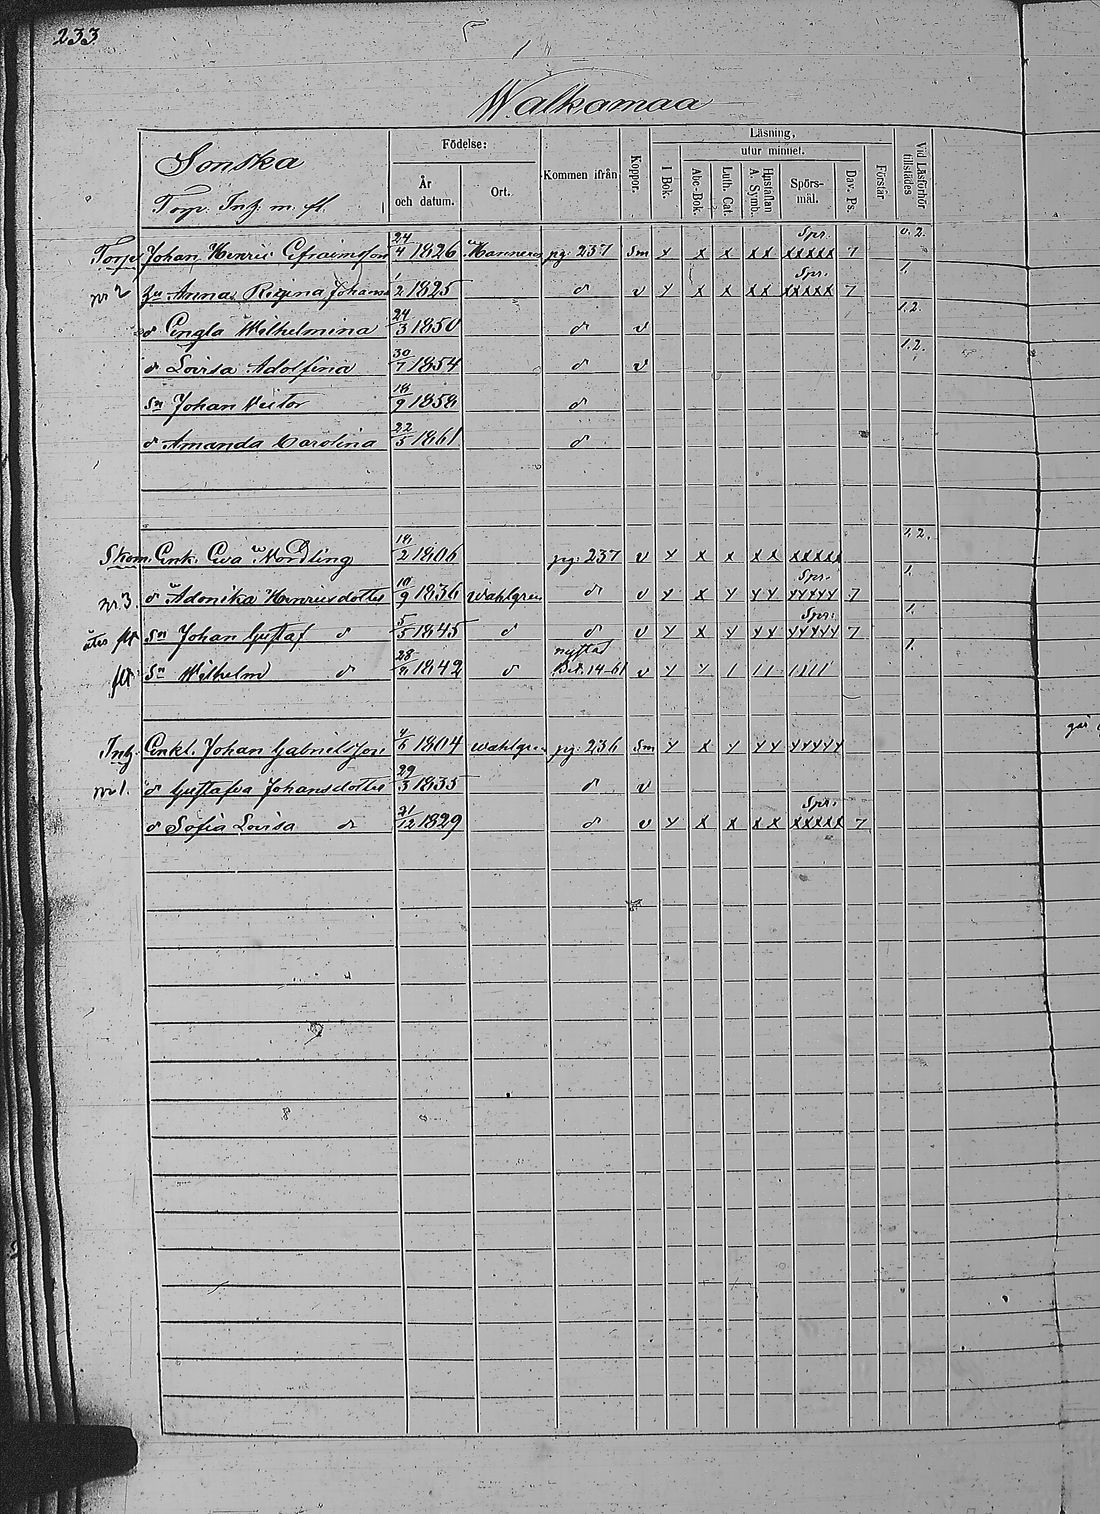 233
Walkamaa
Sonska
Torp. Inh. m. fl.
Födelse:
År och datum.
Ort.
Kommen ifrån
Koppor.
Läsning,
utur minnet.
I Bok.
Abc-Bok.
Luth. Cat.
Hustaflan A. Symb.
Spörs-mål.
Dav. Ps.
Förstår
Vid Läsförhör tillstädes
Spr. 0.2.
Torp Johan Henric Efraimsson 24/4 1826 pg. 237 Sm Y X X XX XXXXX 7
Spr. 1.
nr 2 Anna Regina Johans 1/2 1825 d v Y X X XX XXXXX 7
1.2.
d Engla Wilhelmina 24/3 1850 d v
1.2.
d Lovisa Adolfina 30/7 1854 d v
Sn Johan Victor 18/9 1858 d
d Amanda Carolina 22/5 1861 d
1.2.
Skom. Enk. Eva Nordling 18/2 1806 pg. 237 v Y X X XX XXXXX
Spr. 1.
nr 3. d Adonika Henricsdotter 10/9 1836 Wahlgren d v Y X Y YY YYYYY 7
Spr. 1.
åter flt Sn Johan Gustaf d 5/5 1845 d d v Y X Y YY YYYYY 7
1.
flt Sn Wilhelm d 28/8 1842 d 14-61 v Y Y / // ////
Inh. Enkl. Johan Gabrielsson 4/6 1804 Wahlgren pg. 236 Sm Y X Y YY YYYYY
nr 1. d Gustafva Johansdotter 29/3 1835 d v
Spr.
d Sofia Lovisa d 21/12 1829 d v Y X X XX XXXXX 7